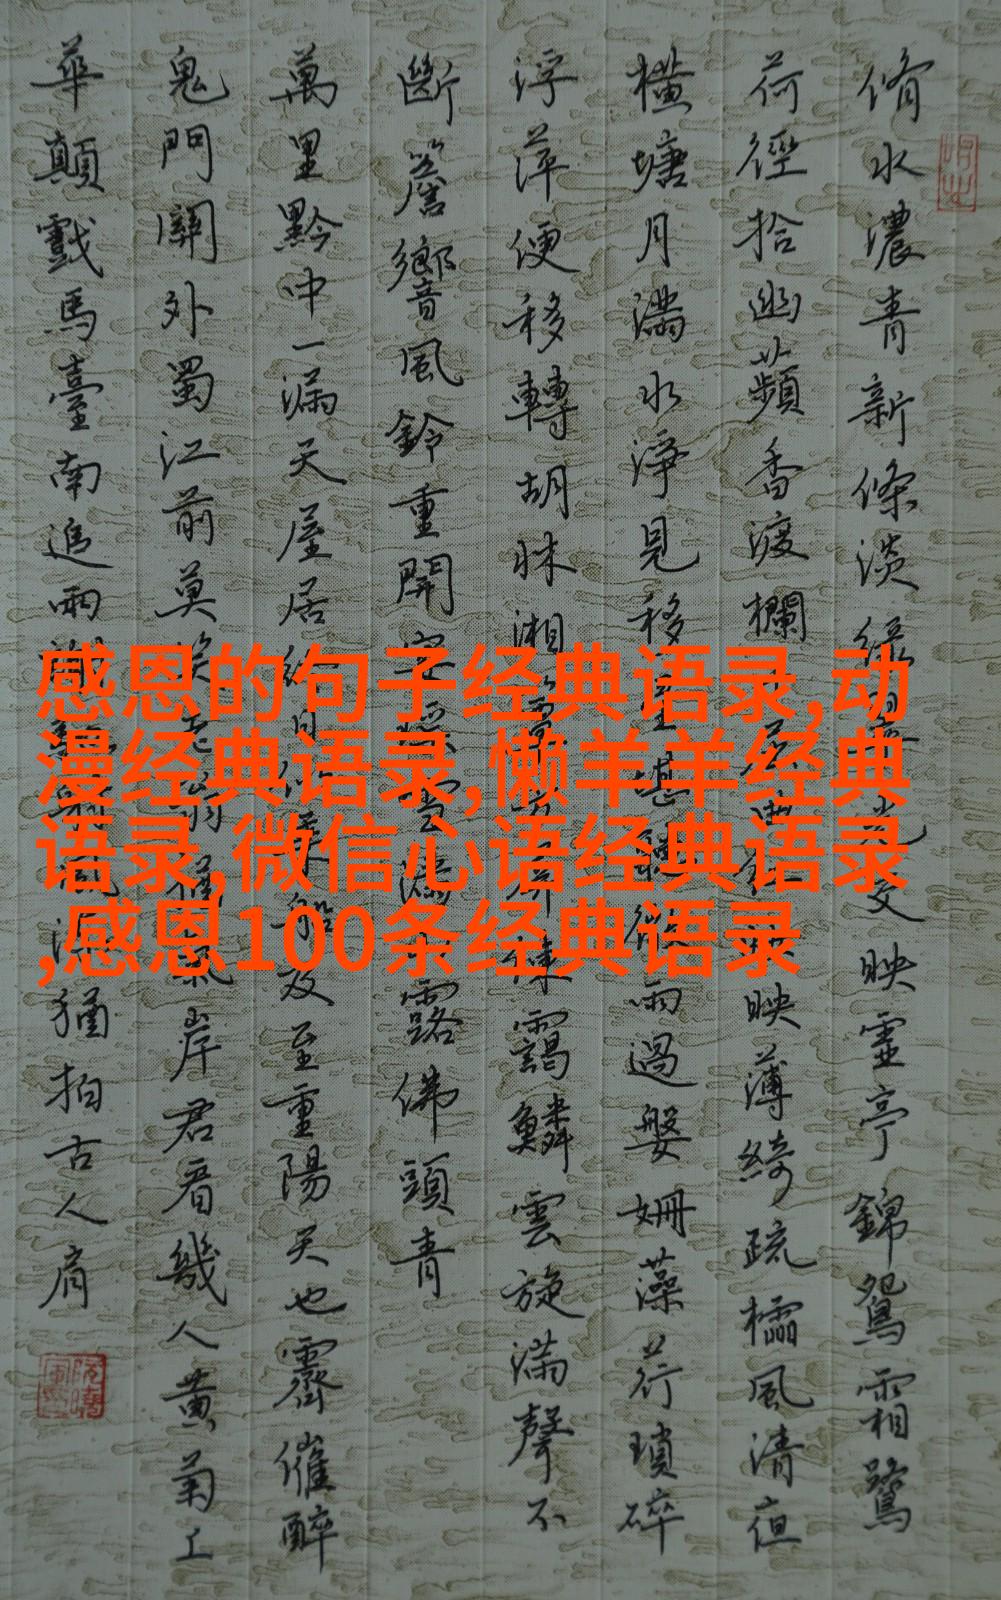 脩水濃青新條淡
映靈亭錦鴛霜鷺
荷徑拾幽蘋香渡欄
映薄綺疏櫺風清但
橫塘月滿水淨見移
雨過媻姗藻荇瑣碎
浮萍便移轉胡牀湘
靄鱗雲旋滿聲不
斷簷響風鈴重開
露佛頭青
萬里黔中一漏天屋居
及至重陽天也霽催醉
鬼門關外蜀江前莫笑
岸君看幾人黃菊上
華顛戲馬臺南追兩
猶拍古人肩
感恩的句子经典语录,动
漫经典语录,懒羊羊经典
语录,微信心语经典语录
,感恩100条经典语录